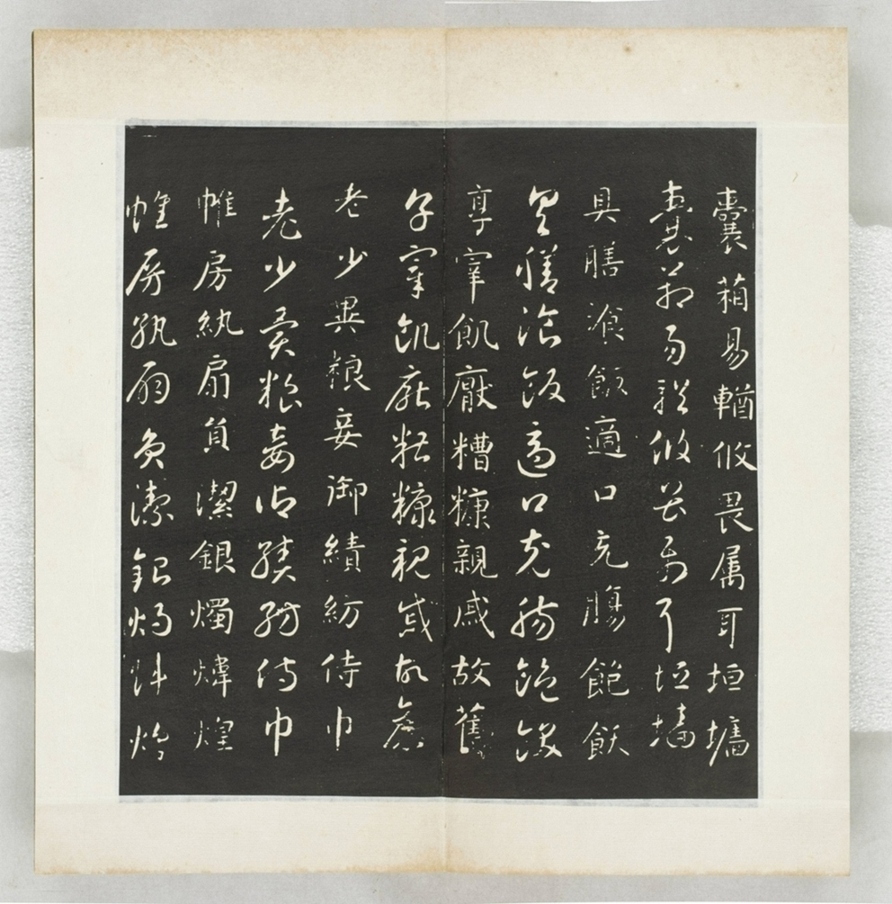 囊箱易輶攸畏属耳垣墻
囊箱易輶攸畏属耳垣墻
具膳湌飯適口充腸飽飫
具膳湌飯適口充腸飽飫
享宰飢厭糟糠親戚故舊
享宰飢厭糟糠親戚故舊
老少異粮妾御績紡侍巾
老少異粮妾御績紡侍巾
帷房紈扇員潔銀燭煒煌
帷房紈扇員潔銀燭煒煌